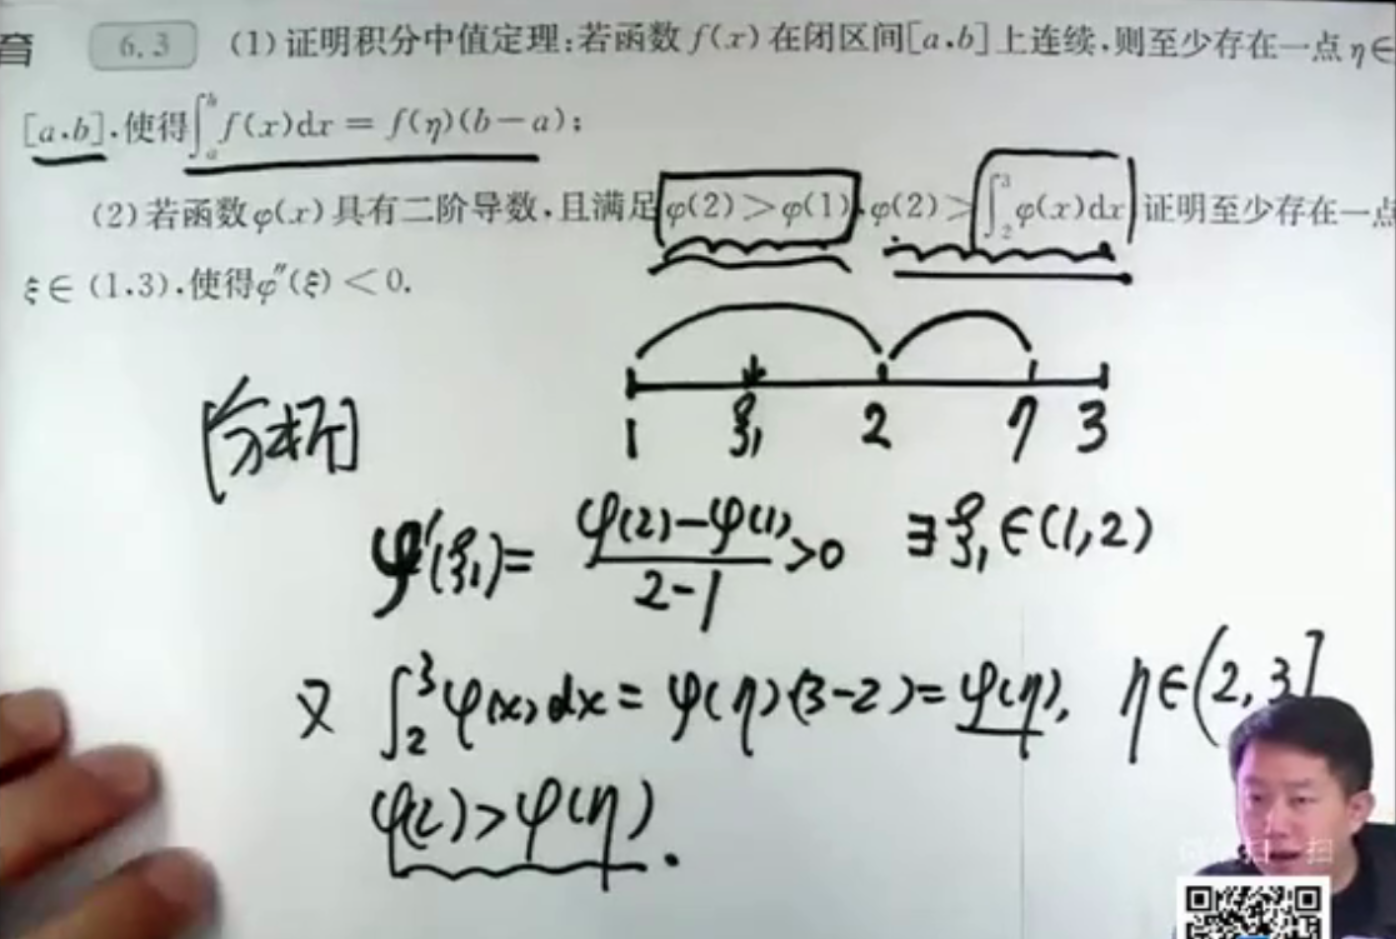 育 6.3 (1) 证明积分中值定理:若函数 f(x) 在闭区间[a,b]上连续,则至少存在一点 η∈
[a,b],使得∫_a^b f(x)dx = f(η)(b-a);
(2) 若函数φ(x)具有二阶导数,且满足φ(2)>φ(1),φ(2)>∫_2^3 φ(x)dx 证明至少存在一点
ξ∈(1,3),使得φ″(ξ)<0.
1 ξ₁ 2 η 3
[分析]
φ′(ξ₁)= (φ(2)-φ(1))/(2-1) >0 ∃ξ₁∈(1,2)
又 ∫_2^3 φ(x)dx = φ(η)(3-2)= φ(η), η∈(2,3]
φ(2)>φ(η).
扫一扫